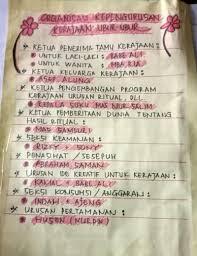 ORGANISASI KEPENGURUSAN
KERAJAAN UBUR UBUR
KETUA PENERIMA TAMU KERAJAAN :
UNTUK LAKI-LAKI : BABE ALI
UNTUK WANITA : MBA RIA
KETUA KELUARGA KERAJAAN :
ASEP ALJNG
KETUA PENGEMBANGAN PROGRAM
KERAJAAN URUSAN RITUAL, DLL.
KEPALA SUKU MAS NUR SALIM
KETUA PEMBERITAAN DUNIA TENTANG
HASIL RITUAL :
MAS SAMSURI
SEKSI KEAMANAN :
RIZKY + SONY
PENASIHAT / SESEPUH
ABRAHAM SAMAN
URUSAN IDE KREATIF UNTUK KERAJAAN :
KAMAL + BABE ALI
SEKSI KONSUMSI / ANGGARAN :
INDAH + AJENG
URUSAN PERTAMANAN :
HUSON (NURDIN)